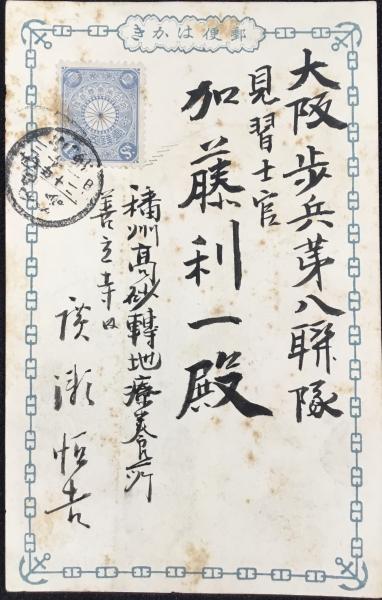 郵便はかき
大阪歩兵第八聯隊
見習士官
加藤利一殿
播州高砂轉地療養所
善立寺
廣瀬恒吉